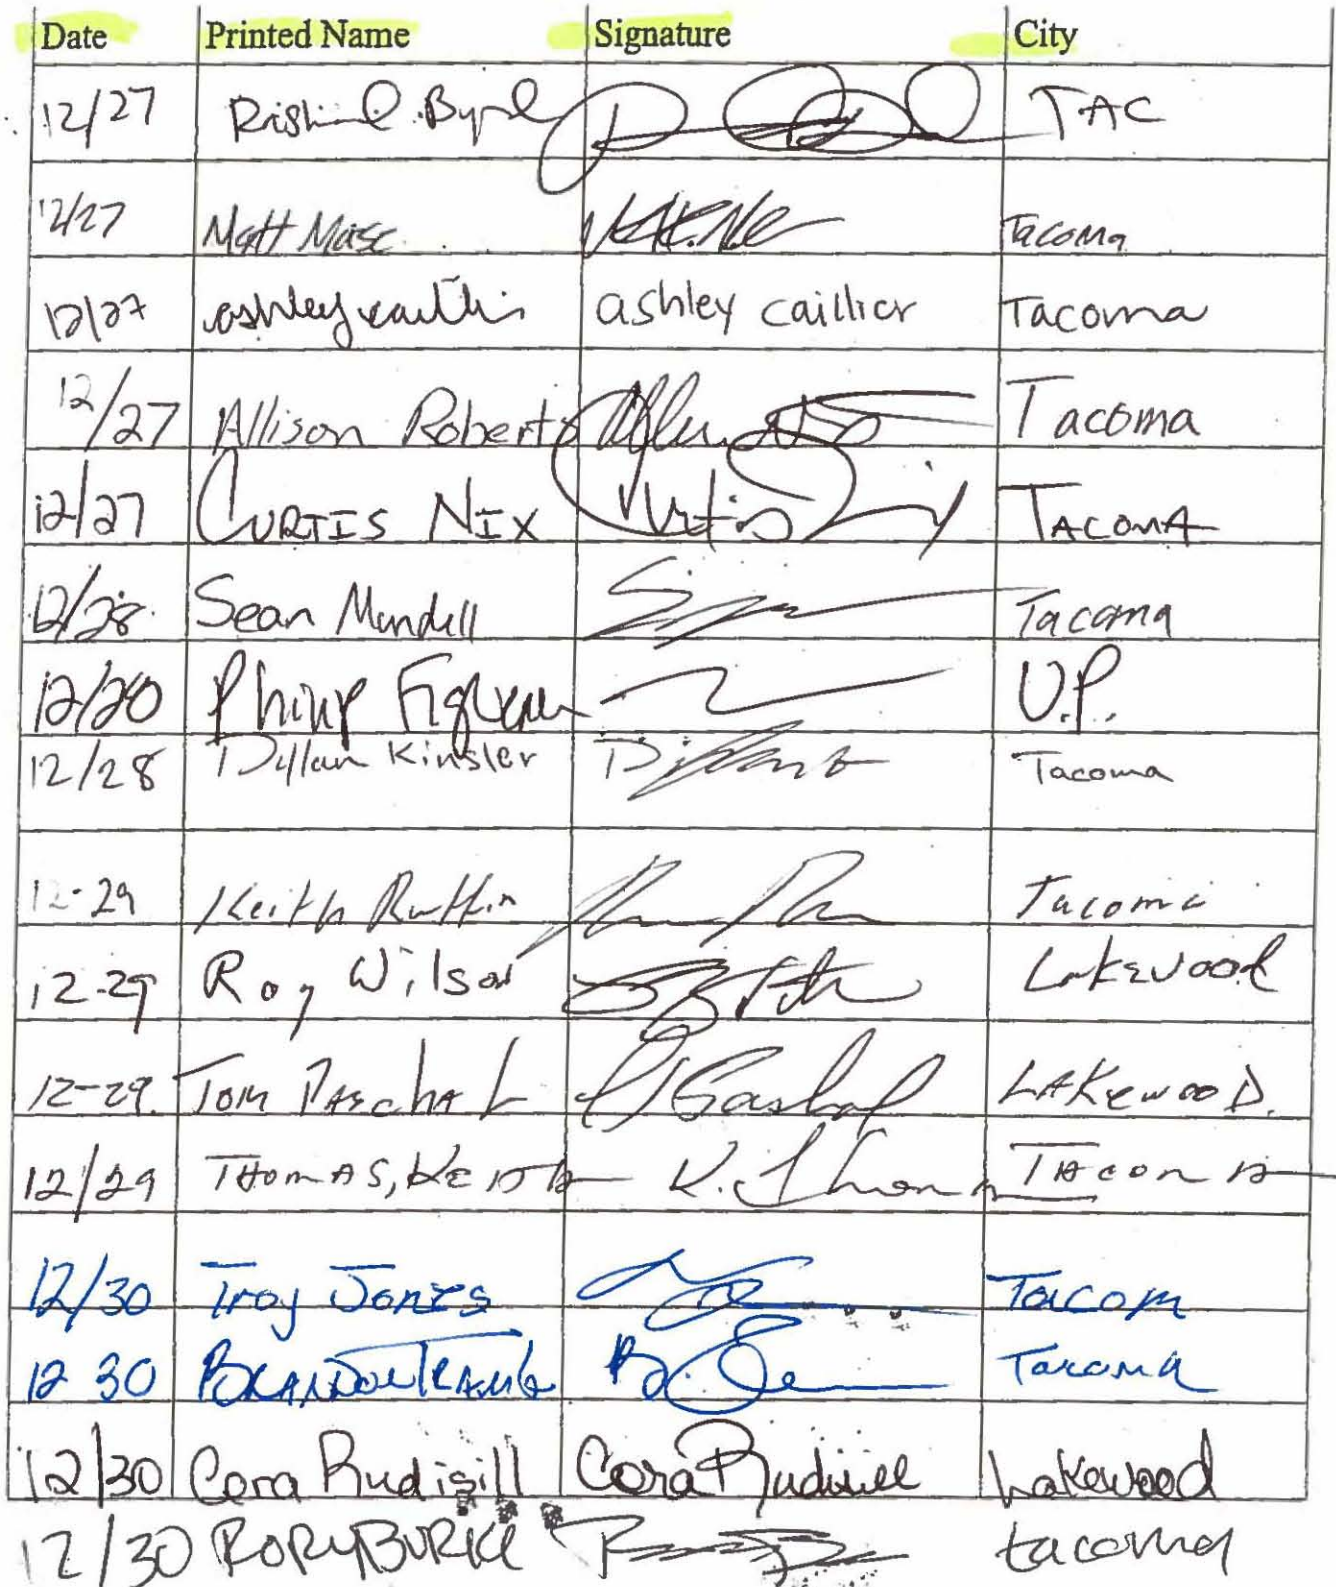 Date Printed Name Signature City
12/27 Byrd TAC
12/27 Matt Tacoma
12/27 ashley ashley caillier Tacoma
12/27 Allison Roberts Tacoma
12/27 CURTIS NIX Curtis Nix TACOMA
12/28 Sean Mandell Tacoma
12/28 Philip U.P.
12/28 Dillan Kinsler Tacoma
12-29 Keith Ruffin Tacoma
12-29 Roy Wilson Lakewood
12-29. TOM PASchaL LAKewooD.
12/29 THOMAS, KEITH K. Thomas TACOMA
12/30 Troy Jones Tacom
12 30 BRANDON Tacoma
12/30 Cora Rudisill Cora Rudisill Lakewood
12/30 RORY BURKE tacoma